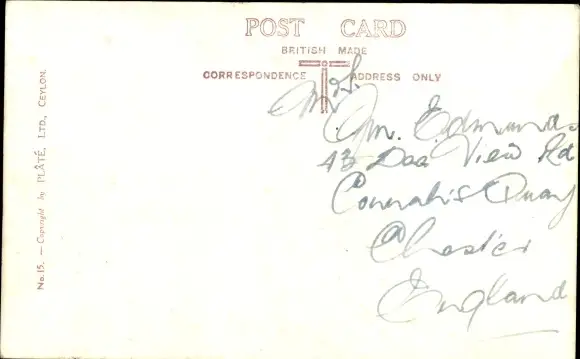 POST CARD
BRITISH MADE
CORRESPONDENCE ADDRESS ONLY
No. 15. — Copyright by PLÂTÉ, LTD., CEYLON.
Edmunds
43 Dee View Rd
Connah's Quay
Chester
England